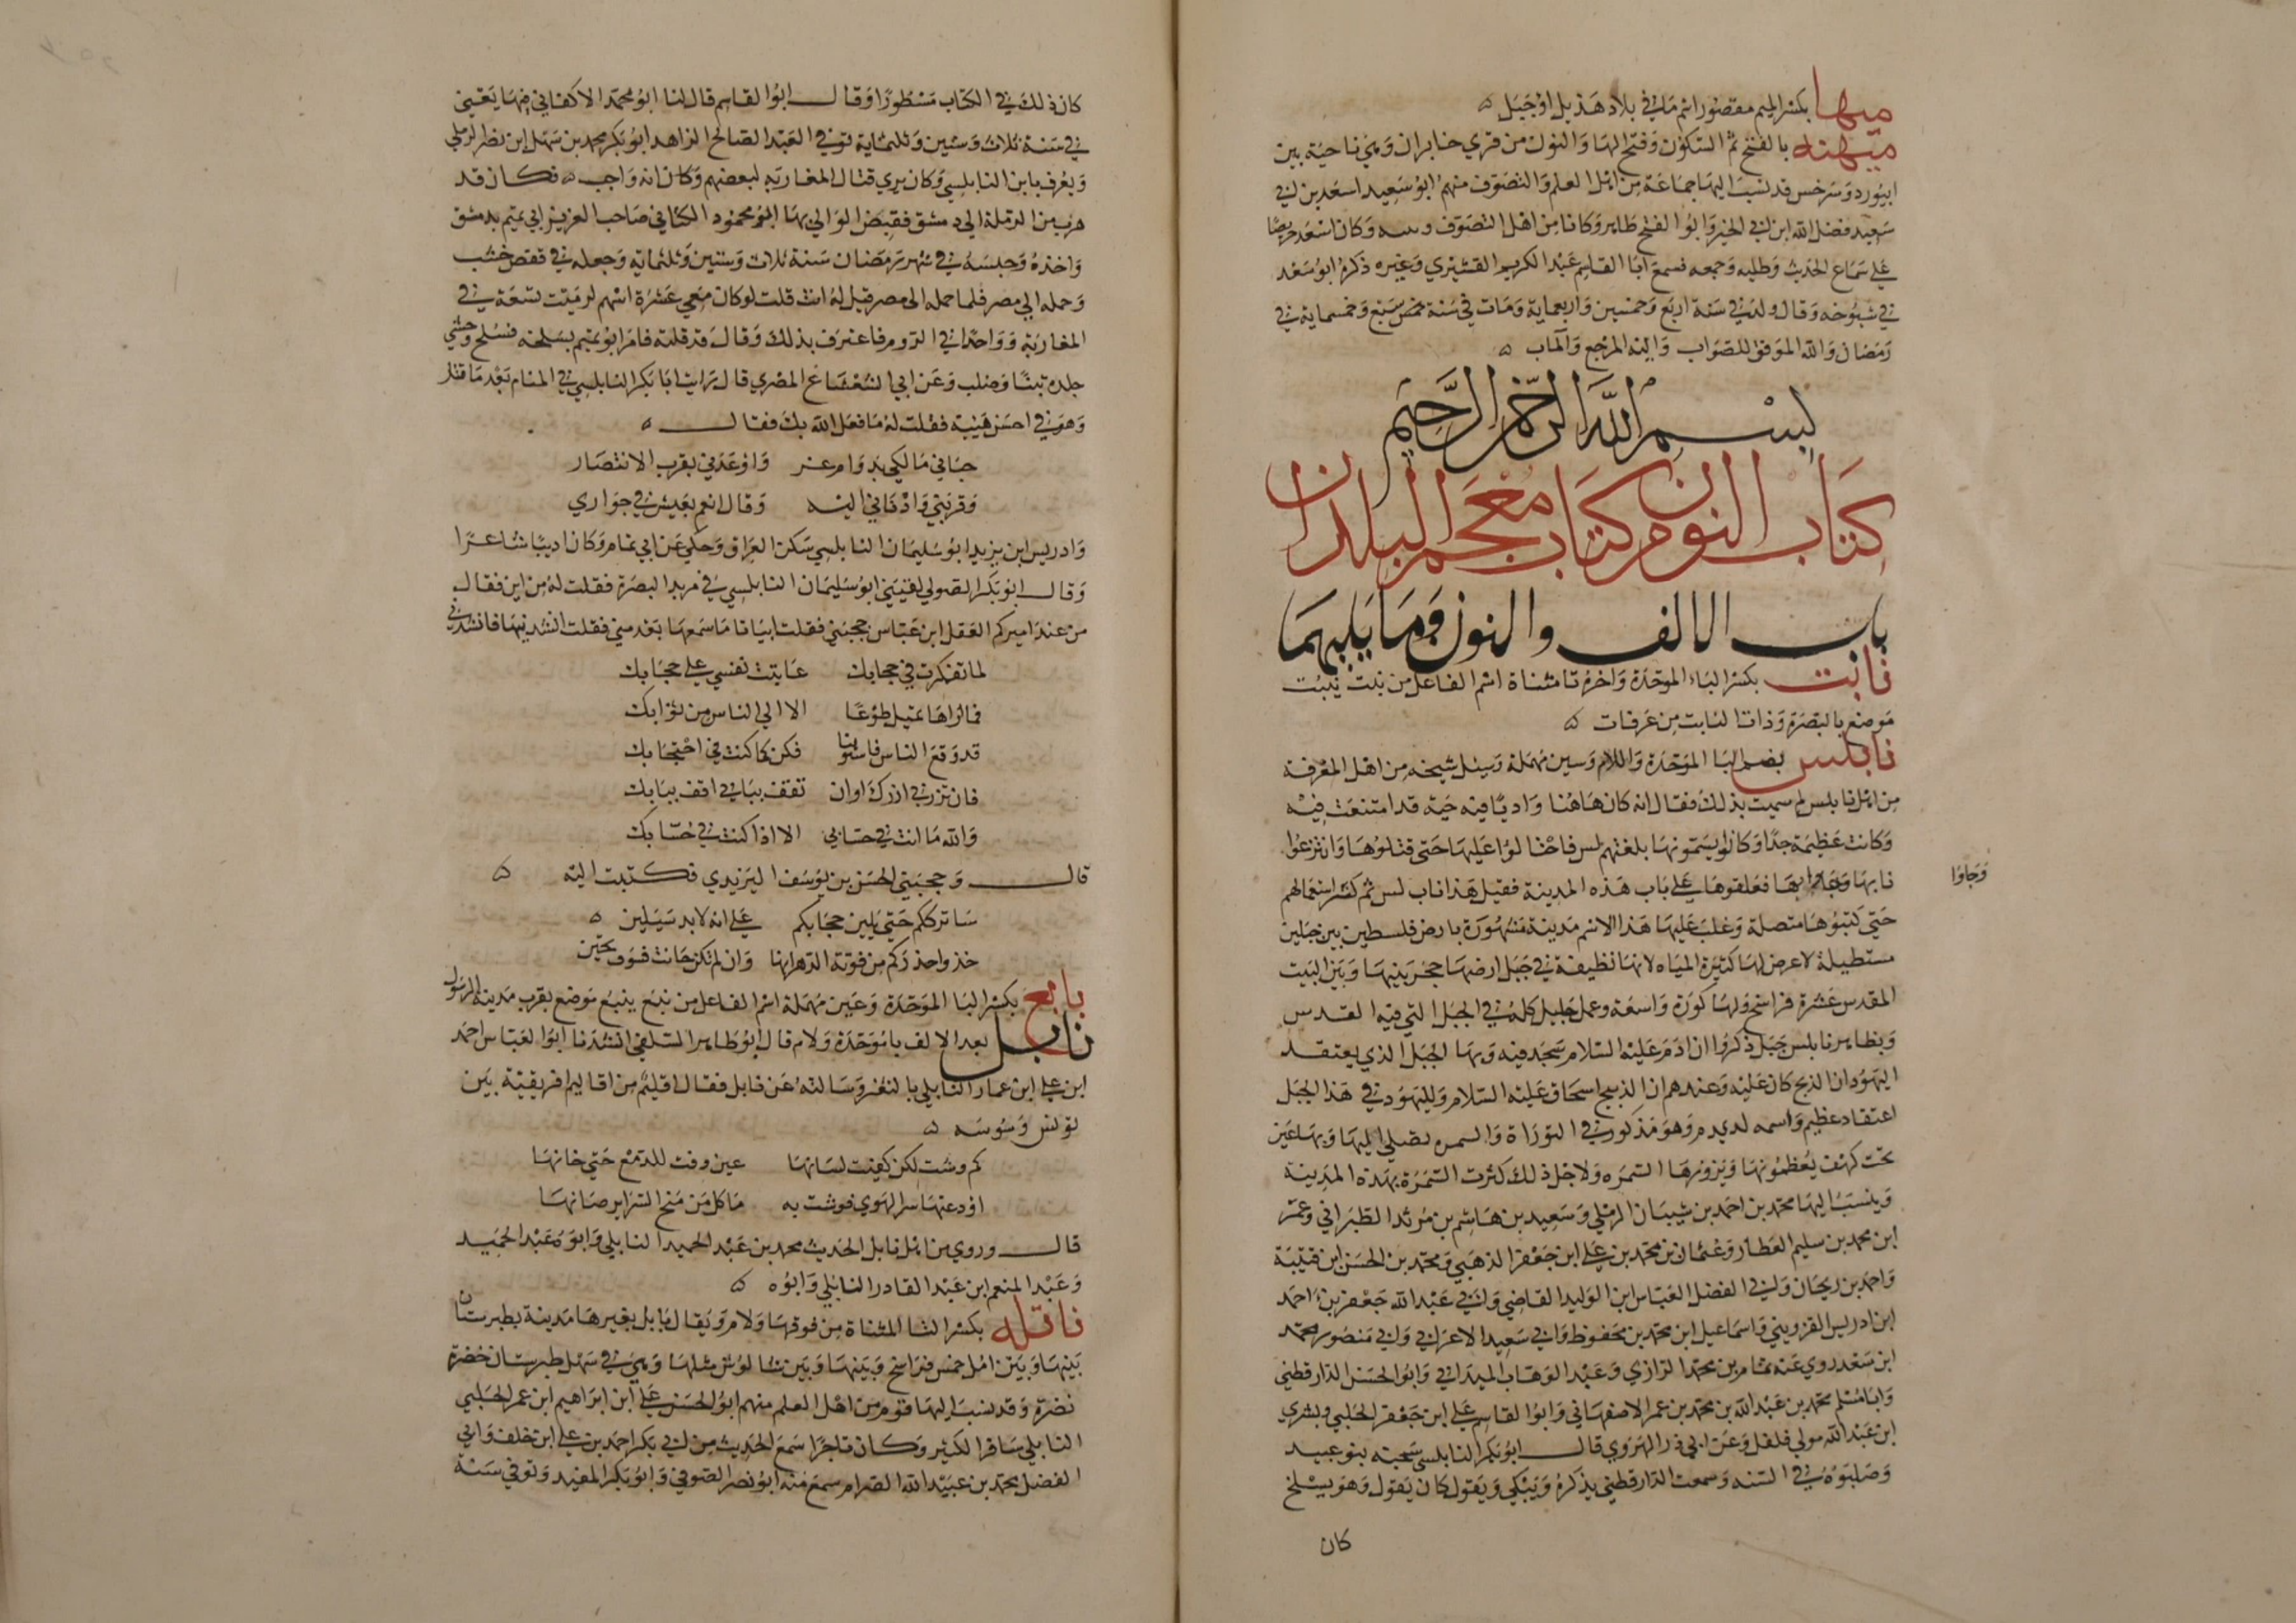 ميها بكسر الميم مقصور اسم ماء في بلاد هذيل او جبل ه
ميهنه بالفتح ثم السكون وفتح الها والنون من قري خابران وهي ناحية بين
ابيورد وسرخس قد نسب اليها جماعة من اهل العلم والتصوف منهم ابو سعيد اسعد بن ابي
سعيد فضل الله ابن ابي الخير وابوا الفتح طاهر وكانا من اهل التصوف وكان اسعد حريصا
علي سماع الحديث وطلبه وجمعه فسمع ابا القاسم عبد الكريم القشيري وغيره ذكره ابو سعد
في شيوخه وقال ولد في سنة اربع وخمسين واربعماية ومات في سنة سبع وخمسماية في
رمضان والله الموفق للصواب واليه المرجع والمآب ه
بسم الله الرحمن الرحيم
كتاب النون من كتاب معجم البلدان
باب الالف والنون وما يليهما
نابت بكسر الباء الموحدة واخره تا مثناة اسم الفاعل من نبت ينبت
موضع بالبصرة وذات النابت من عرفات ه
نابلس بضم البا الموحدة واللام وسين مهملة وسيل شيخه من اهل المعرفة
من اهل نابلس لم سميت بذلك فقال انه كان هاهنا واديا فيه حية قد امتنعت فيه
وكانت عظيمة جدا وكانوا يسمونها بلغتهم لس فاحتالوا عليها حتي قتلوها وانتزعوا
نابها وجاوا بها فعلقوها علي باب هذه المدينة فقيل هذا ناب لس ثم كثر استعمالهم
وجاوا
حتي كتبوها متصلة وغلب عليها هذا الاسم مدينة مشهورة بارض فلسطين بين جبلين
مستطيلة لا عرض لها كثيرة المياه لانها نظيفة في جبل ارضها حجر بينها وبين البيت
المقدس عشرة فراسخ ولها كورة واسعة وعمل جليل كله في الجبل التي فيه القدس
وبظاهر نابلس جبل ذكروا ان ادم عليه السلام سجد فيه وبها الجبل الذي يعتقد
اليهود ان الذبح كان عليه وعندهم ان الذبيح اسحاق عليه السلام ولليهود في هذا الجبل
اعتقاد عظيم واسمه وهو مذكور في التوراة والسمره تصلي اليها وبها عين
تحت كهف يعظمونها ويزورها السمره ولاجل ذلك كثرت السمرة بهذه المدينة
وينسب اليها محمد بن احمد بن شيبان الرملي وسعيد بن هاشم بن مرثد الطبراني وعمر
ابن محمد بن سليم العطار وعثمان بن محمد بن علي ابن جعفر الذهبي ومحمد بن الحسن ابن قتيبة
واحمد بن ريحان وابي الفضل العباس ابن الوليد القاضي وابي عبد الله جعفر بن احمد
ابن ادريس القزويني واسماعيل ابن محمد بن محفوظ وابي سعيد الاعرابي وابي منصور محمد
ابن سعد روي عنه تمام بن محمد الرازي وعبد الوهاب الميداني وابوا الحسن الدارقطني
وابا مسلم محمد بن عبد الله بن محمد بن عمر الاصفهاني وابوا القاسم علي ابن جعفر الحلبي وبشري
ابن عبد الله مولي فلفل وعن ابي ذر الهروي قال ابو بكر النابلسي سجنه بنو عبيد
وصلبوه في السنه وسمعت الدارقطني يذكره ويبكي ويقول كان يقول وهو يسلخ
كان
كان ذلك في الكتاب مسطورا وقال ابوا القاسم قال لنا ابو محمد الاكفاني فيها يعني
في سنة ثلاث وستين وثلثماية توفي العبد الصالح الزاهد ابو بكر محمد بن سهل ابن نظر الرملي
ويعرف بابن النابلسي وكان يري قتال المغاربه لبعضهم وكان انه واجب ه فكان قد
هرب من الرملة الي دمشق فقبض الوالي بها ابو محمود الكتاني صاحب العزيز ابي تميم بدمشق
واخذه وحبسه في شهر رمضان سنة ثلاث وستين وثلثمايه وجعله في قفص خشب
وحمله الي مصر فلما حمله الي مصر قيل له انت قلت لو كان معي عشرة اسهم لرميت تسعة في
المغاربة وواحدا في الروم فاعترف بذلك وقال قد قلته فامر ابو تميم بسلخه فسلخ وحشي
جلده تبنا وصلب وعن ابي الشعشاع المصري قال رايت ابا بكر النابلسي في المنام بعد ما قتل
وهو في احسن هيئة فقلت له ما فعل الله بك فقال ه
حباني مالكي بدوام عز واوعدني بقرب الانتصار
وقربني وادناني اليه وقال انعم بعيش في جواري
وادريس ابن يزيد ابو سليمان النابلسي سكن العراق وحكي عن ابي تمام وكان اديبا شاعرا
وقال ابو بكر الصولي لقيني ابو سليمان النابلسي في مربد البصرة فقلت له من اين فقال
من عند اميركم الفضل ابن عباس حجبني فقلت ابياتا ما سمعها بعد مني فقلت انشدنيها فانشدني
لما تفكرت في حجابك عاتبت نفسي علي حجابك
فما اراها تميل طوعا الا الي الناس من ثوابك
قد وقع الناس فاستوينا فكن كما كنت في احتجابك
فان تزرني ازرك اوان تقف ببابي اقف ببابك
والله ما انت في حسابي الا اذا كنت في حسابك
قال وحجبني الحسن بن يوسف اليزيدي فكتبت اليه ه
ساترككم حتي يلين حجابكم علي انه لابد سيلين ه
خذوا حذركم من فوتة الدهر انها وان لم تكن حانت فسوف تحين
نابع بكسر البا الموحدة وعين مهملة اسم الفاعل من نبع ينبع موضع بقرب مدينة الرسول
نابل بعد الالف با موحدة ولام قال ابو طاهر السلفي انشدنا ابوا العباس احمد
ابن علي ابن عمار النابلي بالثغر وسالته عن نابل فقال اقليم من اقاليم افريقية بين
تونس وسوسه ه
كم وشت لكن كفيت لسانها عين وفت للدمع حتي خانها
اودعتها سر الهوي فوشت به ما كل من منح السراير صانها
قال وروي من اهل نابل الحديث محمد بن عبد الحميد النابلي وابوه عبد الحميد
وعبد المنعم ابن عبد القادر النابلي وابوه ه
ناتله بكسر التا المثناة من فوقها ولام ويقال نابل بغير ها مدينة بطبرستان
بينها وبين امل خمس فراسخ وبينها وبين شالوس مثلها وهي في سهل طبرستان خضرة
نضرة وقد نسب اليها قوم من اهل العلم منهم ابو الحسن علي ابن ابراهيم ابن عمر الحلبي
النابلي سافر الكثير وكان تاجرا سمع الحديث من ابي بكر احمد بن علي ابن خلف وابي
الفضل محمد بن عبيد الله الصرام سمع منه ابو نصر الصوفي وابو بكر المفيد وتوفي سنة